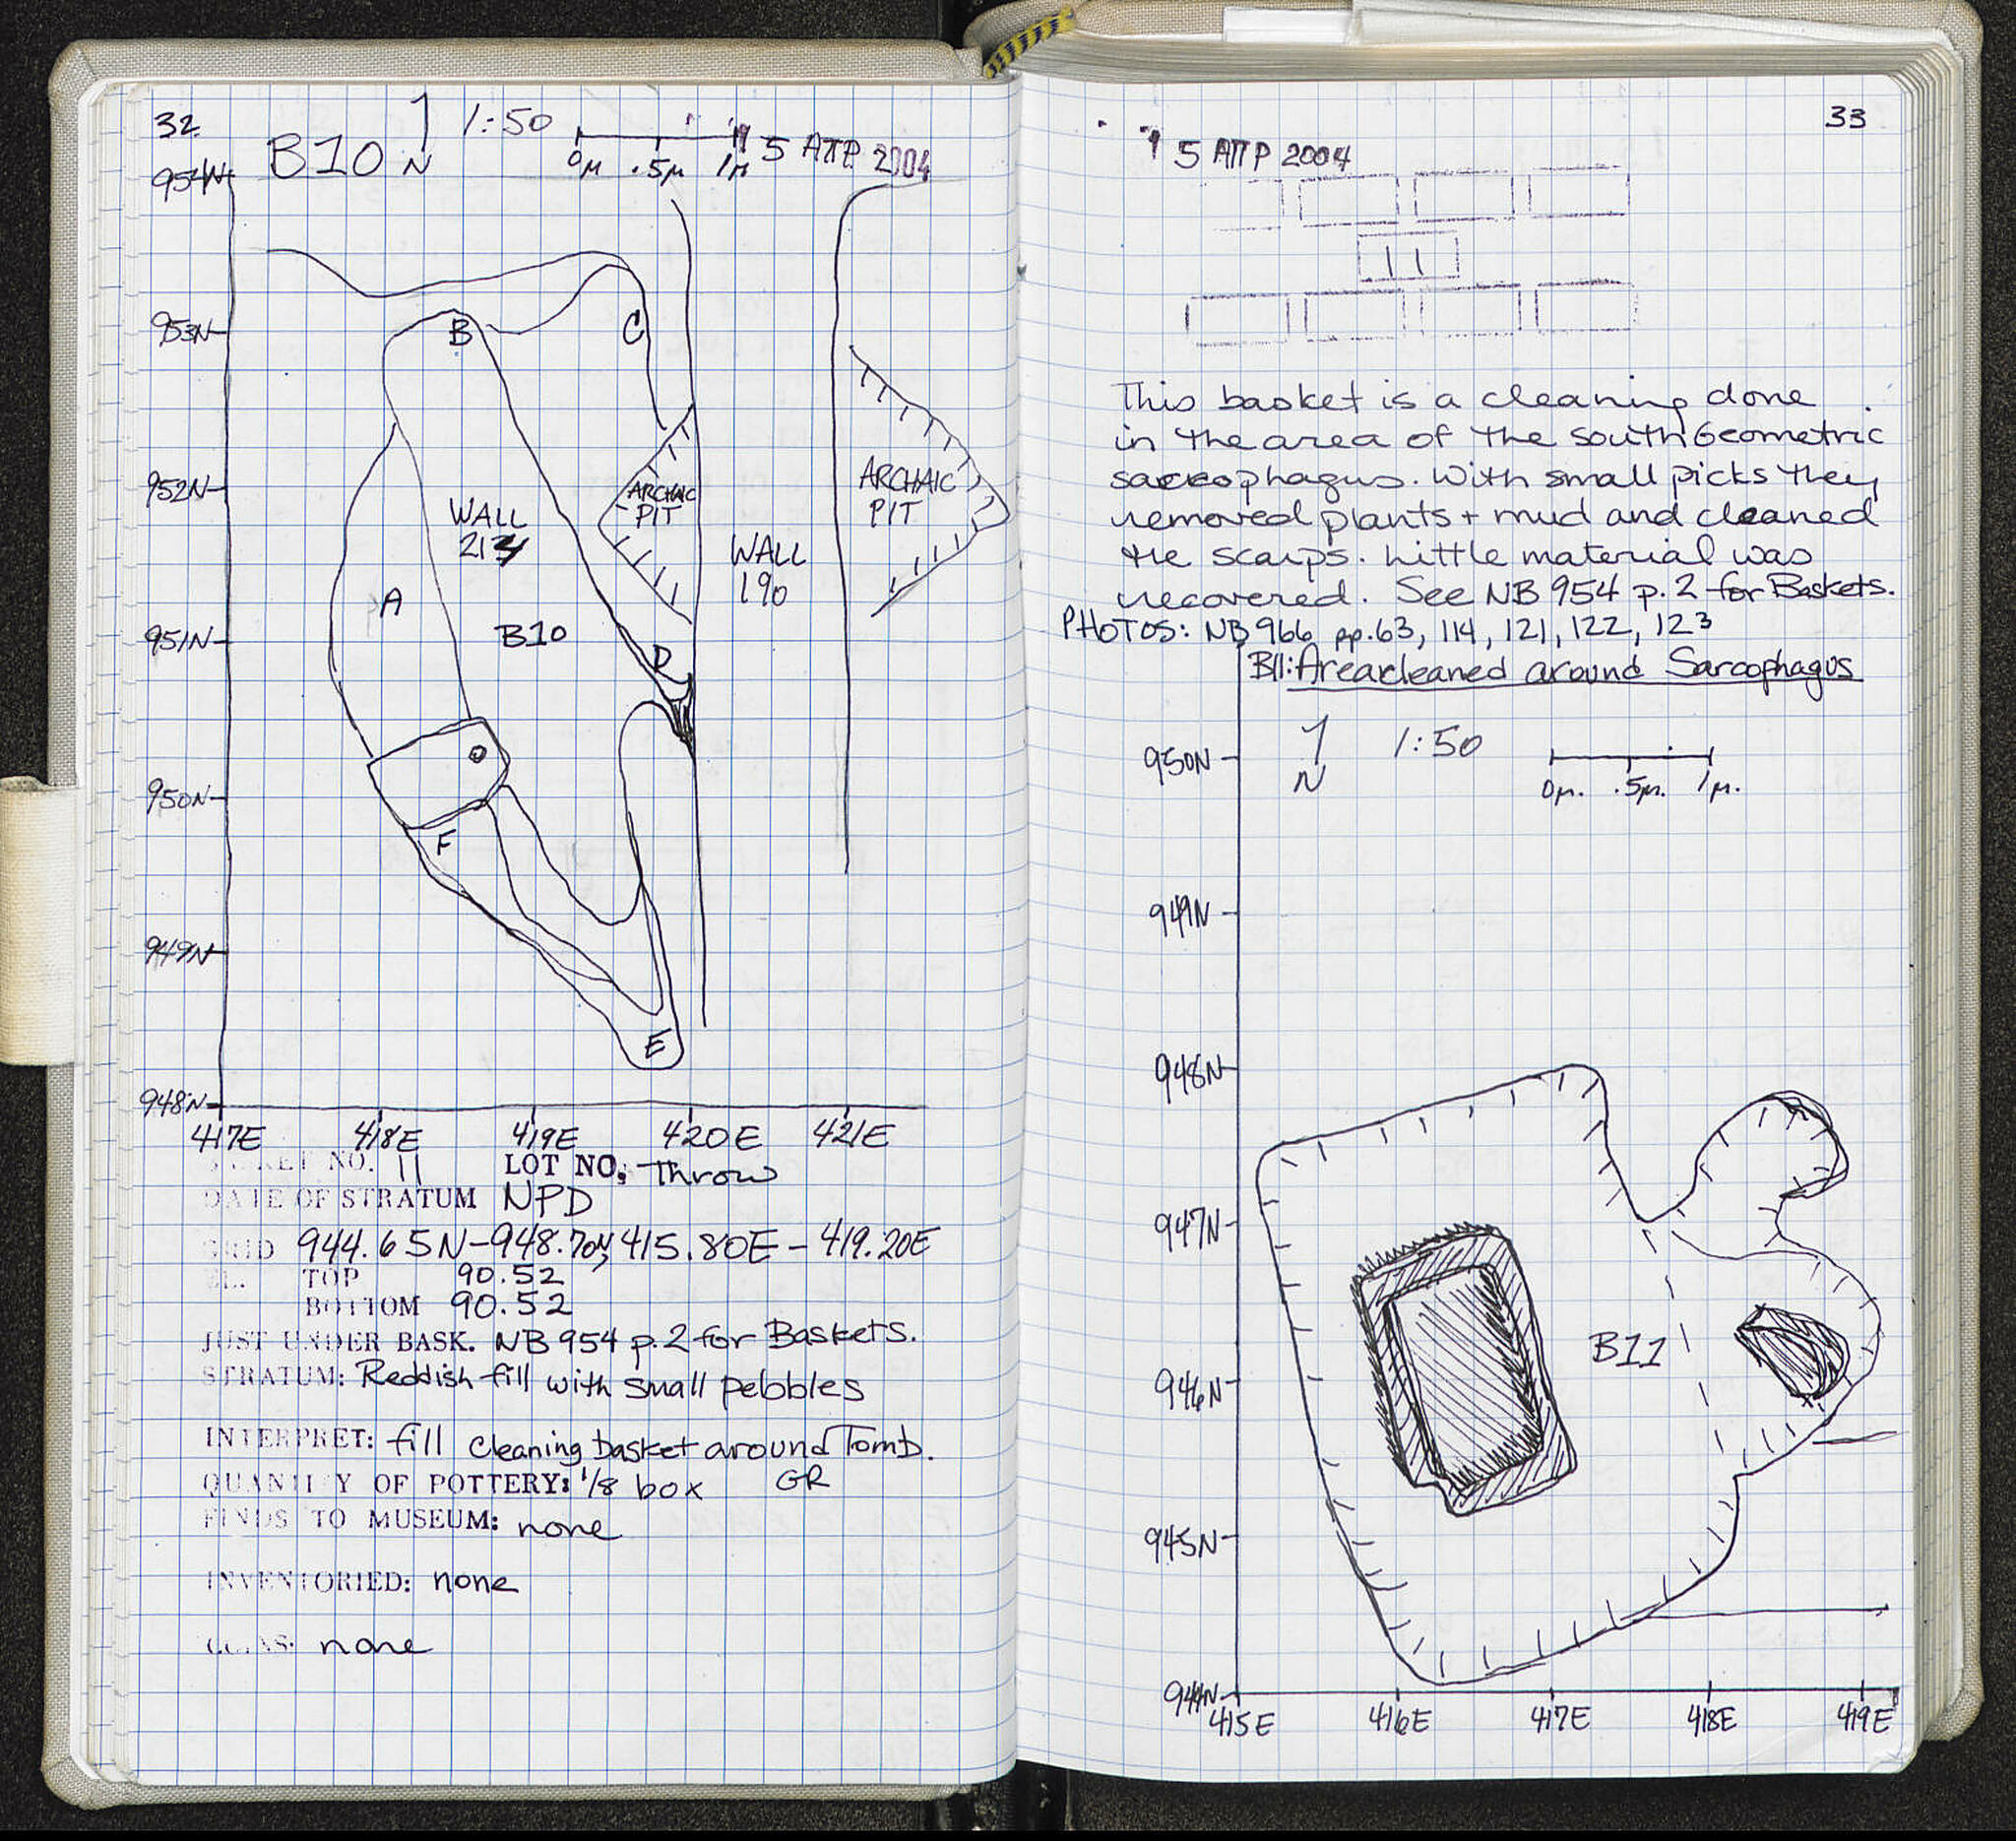 32
B10 N 1:50
0м .5м 1м
5 ΑΠΡ 2004
954N
953N
952N
951N
950N
949N
948N
B
C
ARCHAIC
PIT
ARCHAIC
PIT
WALL
WALL
190
A
B10
D
F
E
417E 418E 419E 420E 421E
BASKET NO. 11 LOT NO. Throw
DATE OF STRATUM NPD
GRID 944.65N-948.70N, 415.80E-419.20E
EL. TOP 90.52
BOTTOM 90.52
JUST UNDER BASK. NB 954 p.2 for Baskets.
STRATUM: Reddish fill with small pebbles
INTERPRET: fill cleaning basket around Tomb.
QUANTITY OF POTTERY: 1/8 box GR
FINDS TO MUSEUM: none
INVENTORIED: none
COINS: none
33
5 ΑΠΡ 2004
11
This basket is a cleaning done
in the area of the south Geometric
sarcophagus. With small picks they
removed plants + mud and cleaned
the scarps. Little material was
recovered. See NB 954 p.2 for Baskets.
PHOTOS: NB 966 pp.63, 114, 121, 122, 123
B11: Area cleaned around Sarcophagus
N 1:50
0м. .5м. 1м.
950N
949N
948N
947N
946N
945N
944N
B11
415E 416E 417E 418E 419E